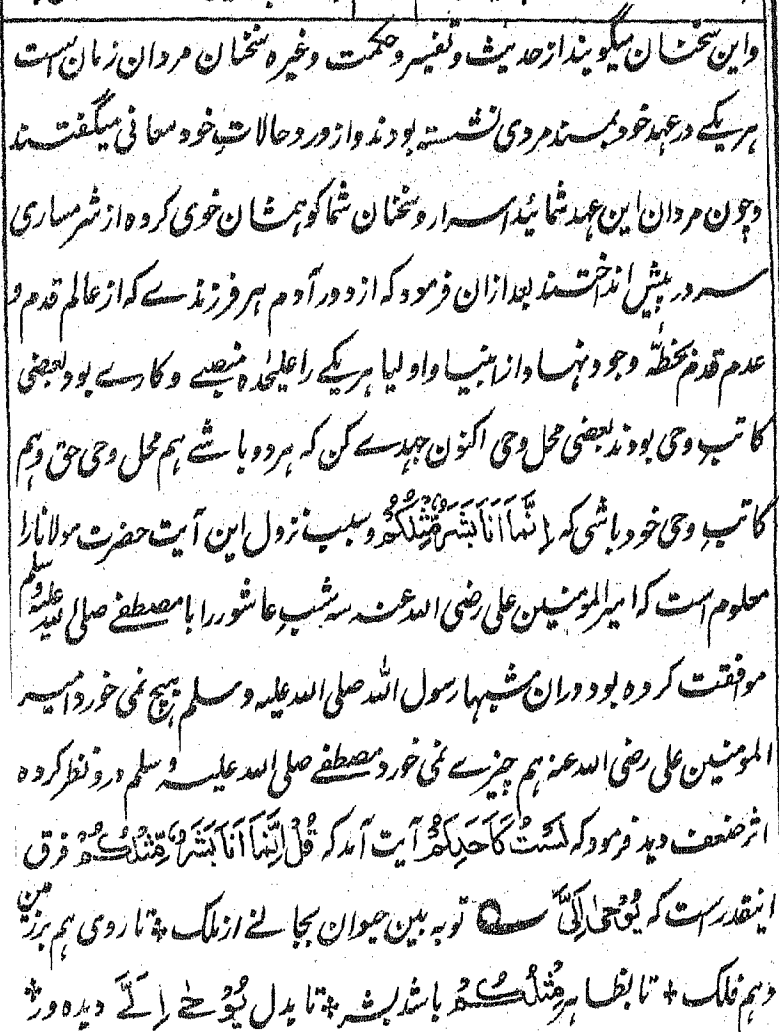 واین سخنان میگویند از حدیث و تفسیر و حکمت و غیره سخنان مردان زمان است
هر یکے در عهد خود بمسند مردی نشسته بودند و از ورد و حالات خود معانی میگفتند
و چون مردان این عهد شمائید اسرار و سخنان شما کو همشان خوی کرده از شرمساری
سر در پیش انداختند بعد ازان فرمود که از دور آدم هر فرزندے که از عالم قدم و
عدم قدم بخطّهٔ وجود نهاد از انبیا و اولیا هر یکے را علیٰحده منصبے و کارے بود بعضی
کاتبِ وحی بودند بعضی محل وحی اکنون جهدے کن که هر دو باشے هم محل وحی حق و هم
کاتبِ وحی خود باشی که إِنَّمَا أَنَا بَشَرٌ مِّثْلُكُمْ و سبب نزول این آیت حضرت مولانا را
معلوم است که امیر المومنین علی رضی الله عنه سه شبِ عاشور را با مصطفے صلی الله علیه وسلم
موافقت کرده بود دران شبها رسول الله صلی الله علیه وسلم هیچ نمی خورد امیر
المومنین علی رضی الله عنه هم چیزے نمی خورد مصطفے صلی الله علیه وسلم درو نظر کرده
اثر ضعف دید فرمود که لَسْتُ كَأَحَدِكُمْ آیت آمد که قُلْ إِنَّمَا أَنَا بَشَرٌ مِّثْلُكُمْ فرق
اینقدرست که يُوحَىٰ إِلَيَّ ؎ تو به بین حیوان بجانے از ملک * تا روی هم بر زمین
و هم فلک * تا بظاهر مِثْلُكُمْ باشد بشر * تا بدل يُوحَىٰ إِلَيَّ دیده ور *